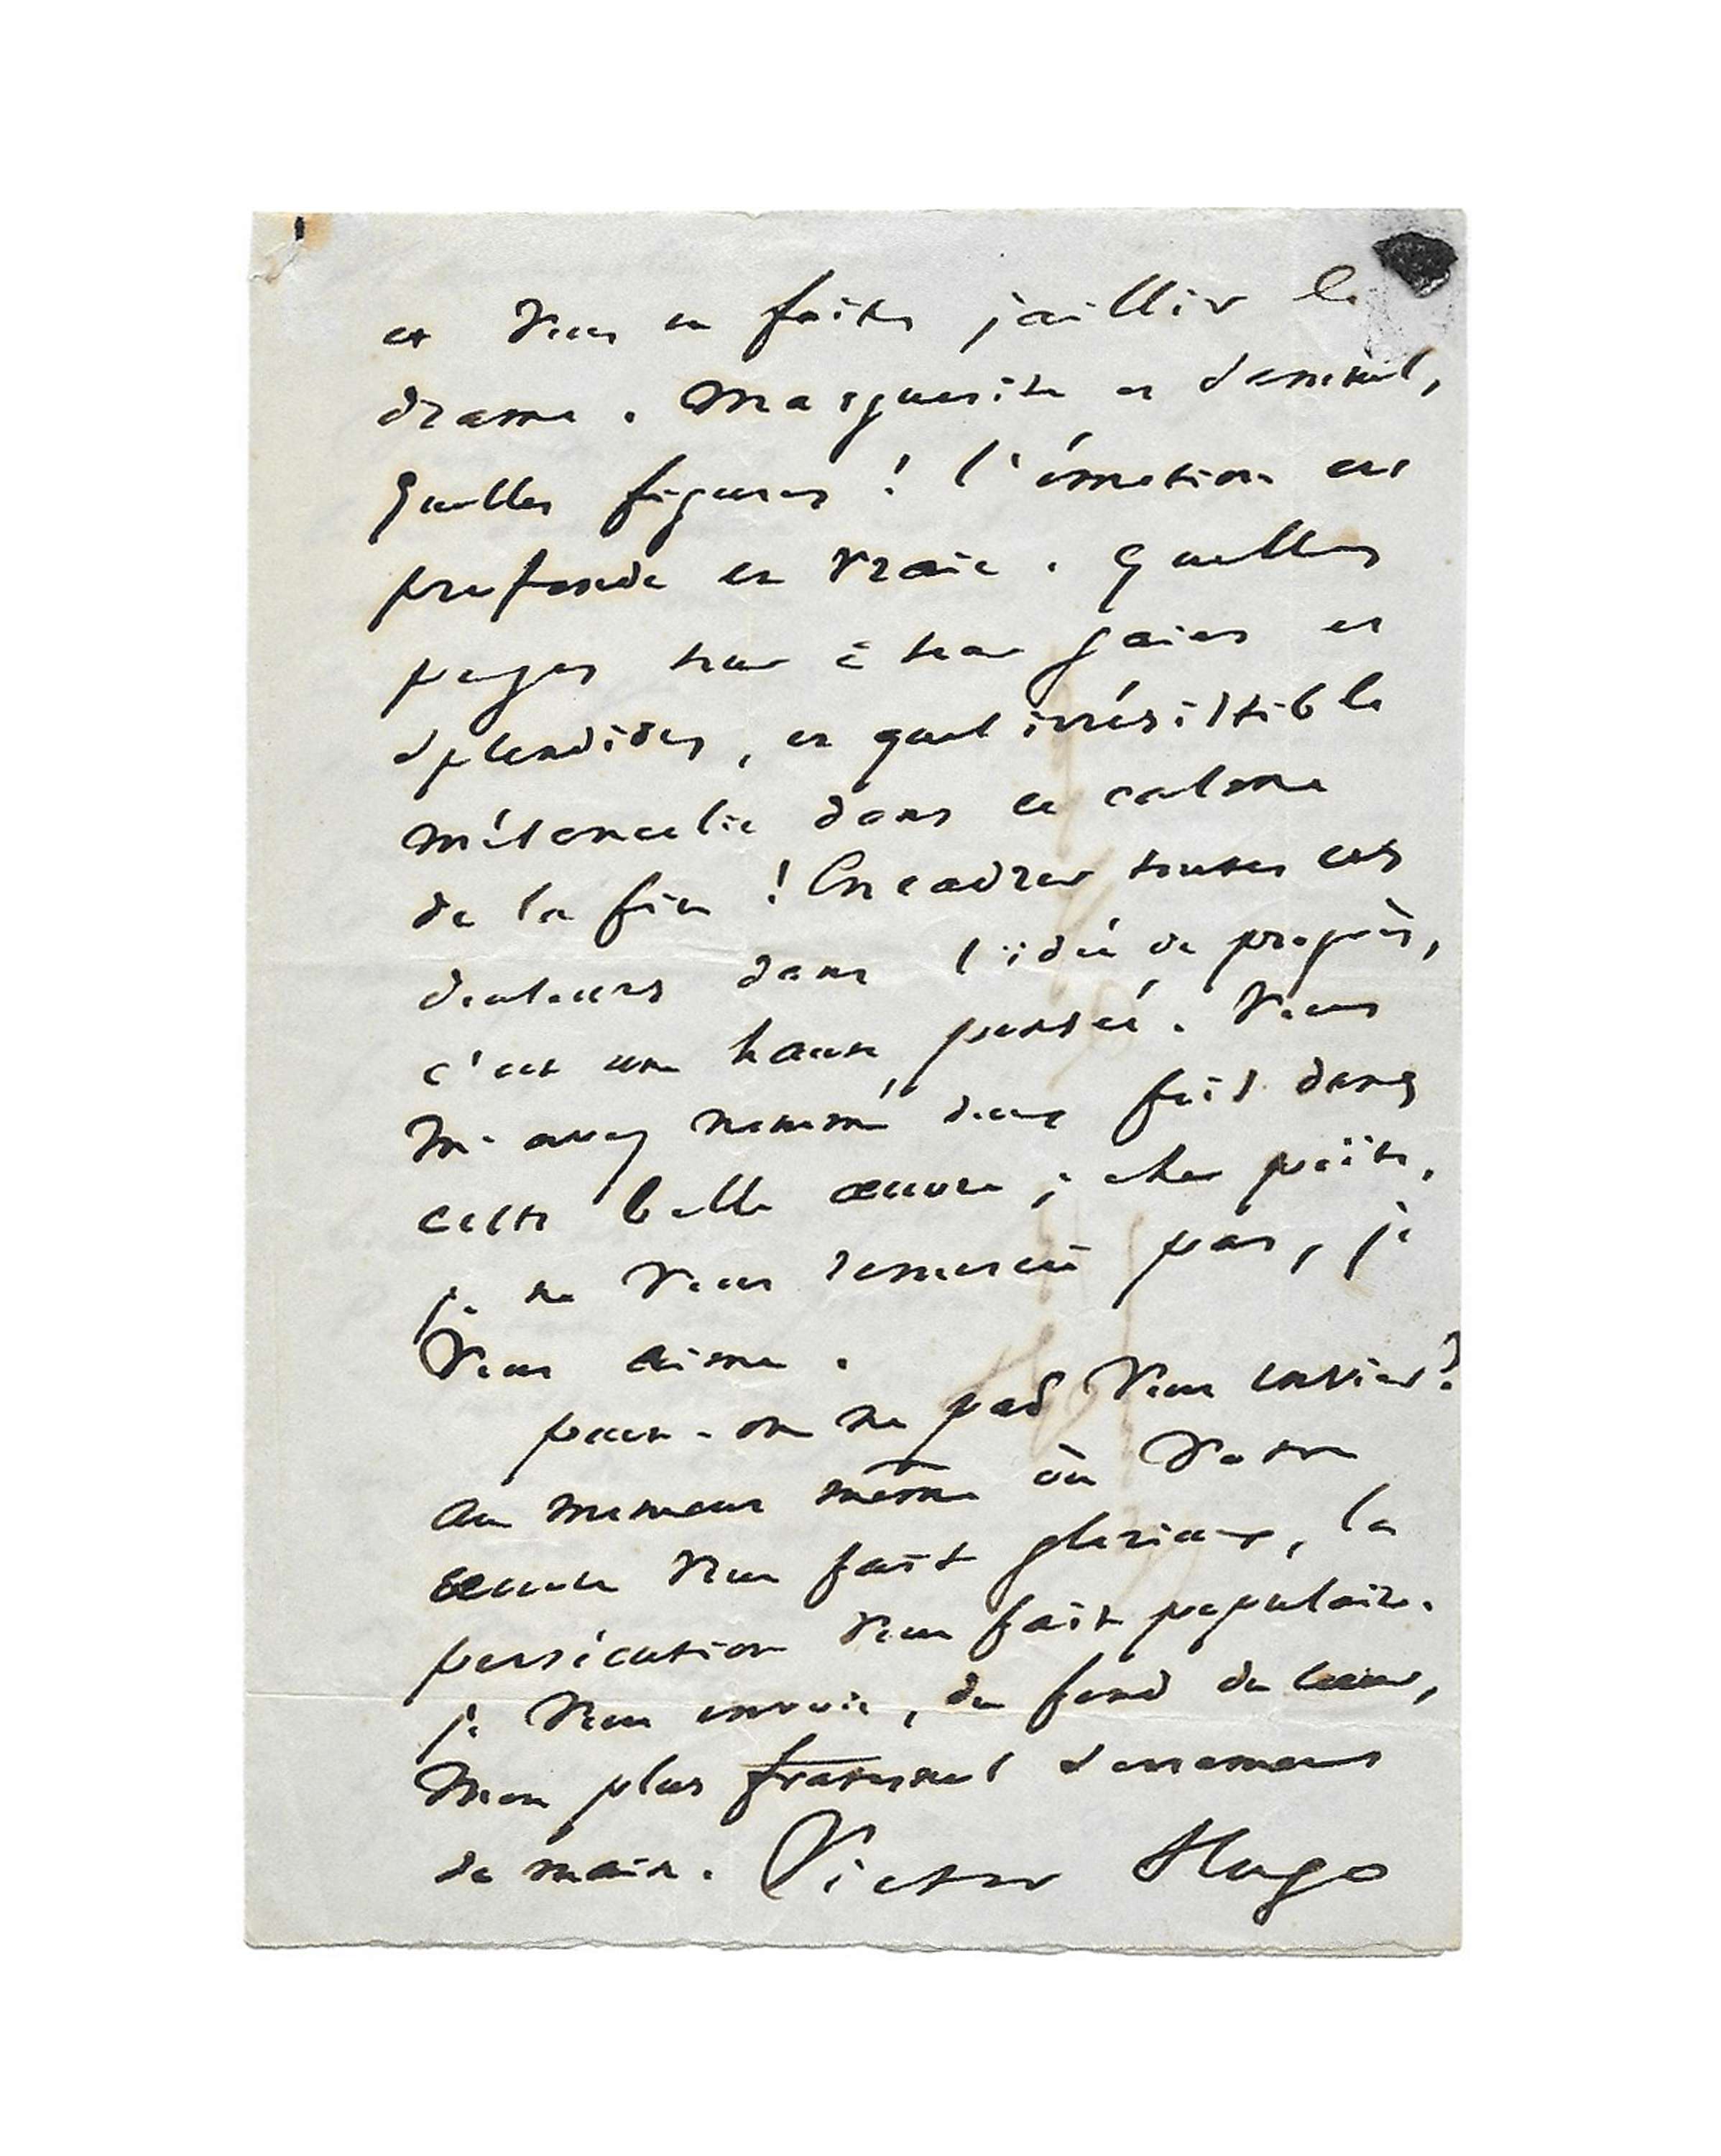 et vous en faites jaillir le
drame. Marguerite et Samuel,
quelles figures ! l'émotion est
profonde et vraie. quelles
pages tour à tour gaies et
splendides, et quel irrésistible
mélancolie dans ce calme
de la fin ! Encadrer toutes ces
douleurs dans l'idée de progrès,
c'est une haute pensée. Vous
m'avez nommé deux fois dans
cette belle œuvre ; cher poëte,
je ne vous remercie pas, je
vous aime.
peut-on ne pas vous envier ?
au moment même où votre
œuvre vous fait glorieux, la
persécution vous fait populaire.
je vous envoie, du fond du cœur,
mon plus fraternel serrement
de main. Victor Hugo